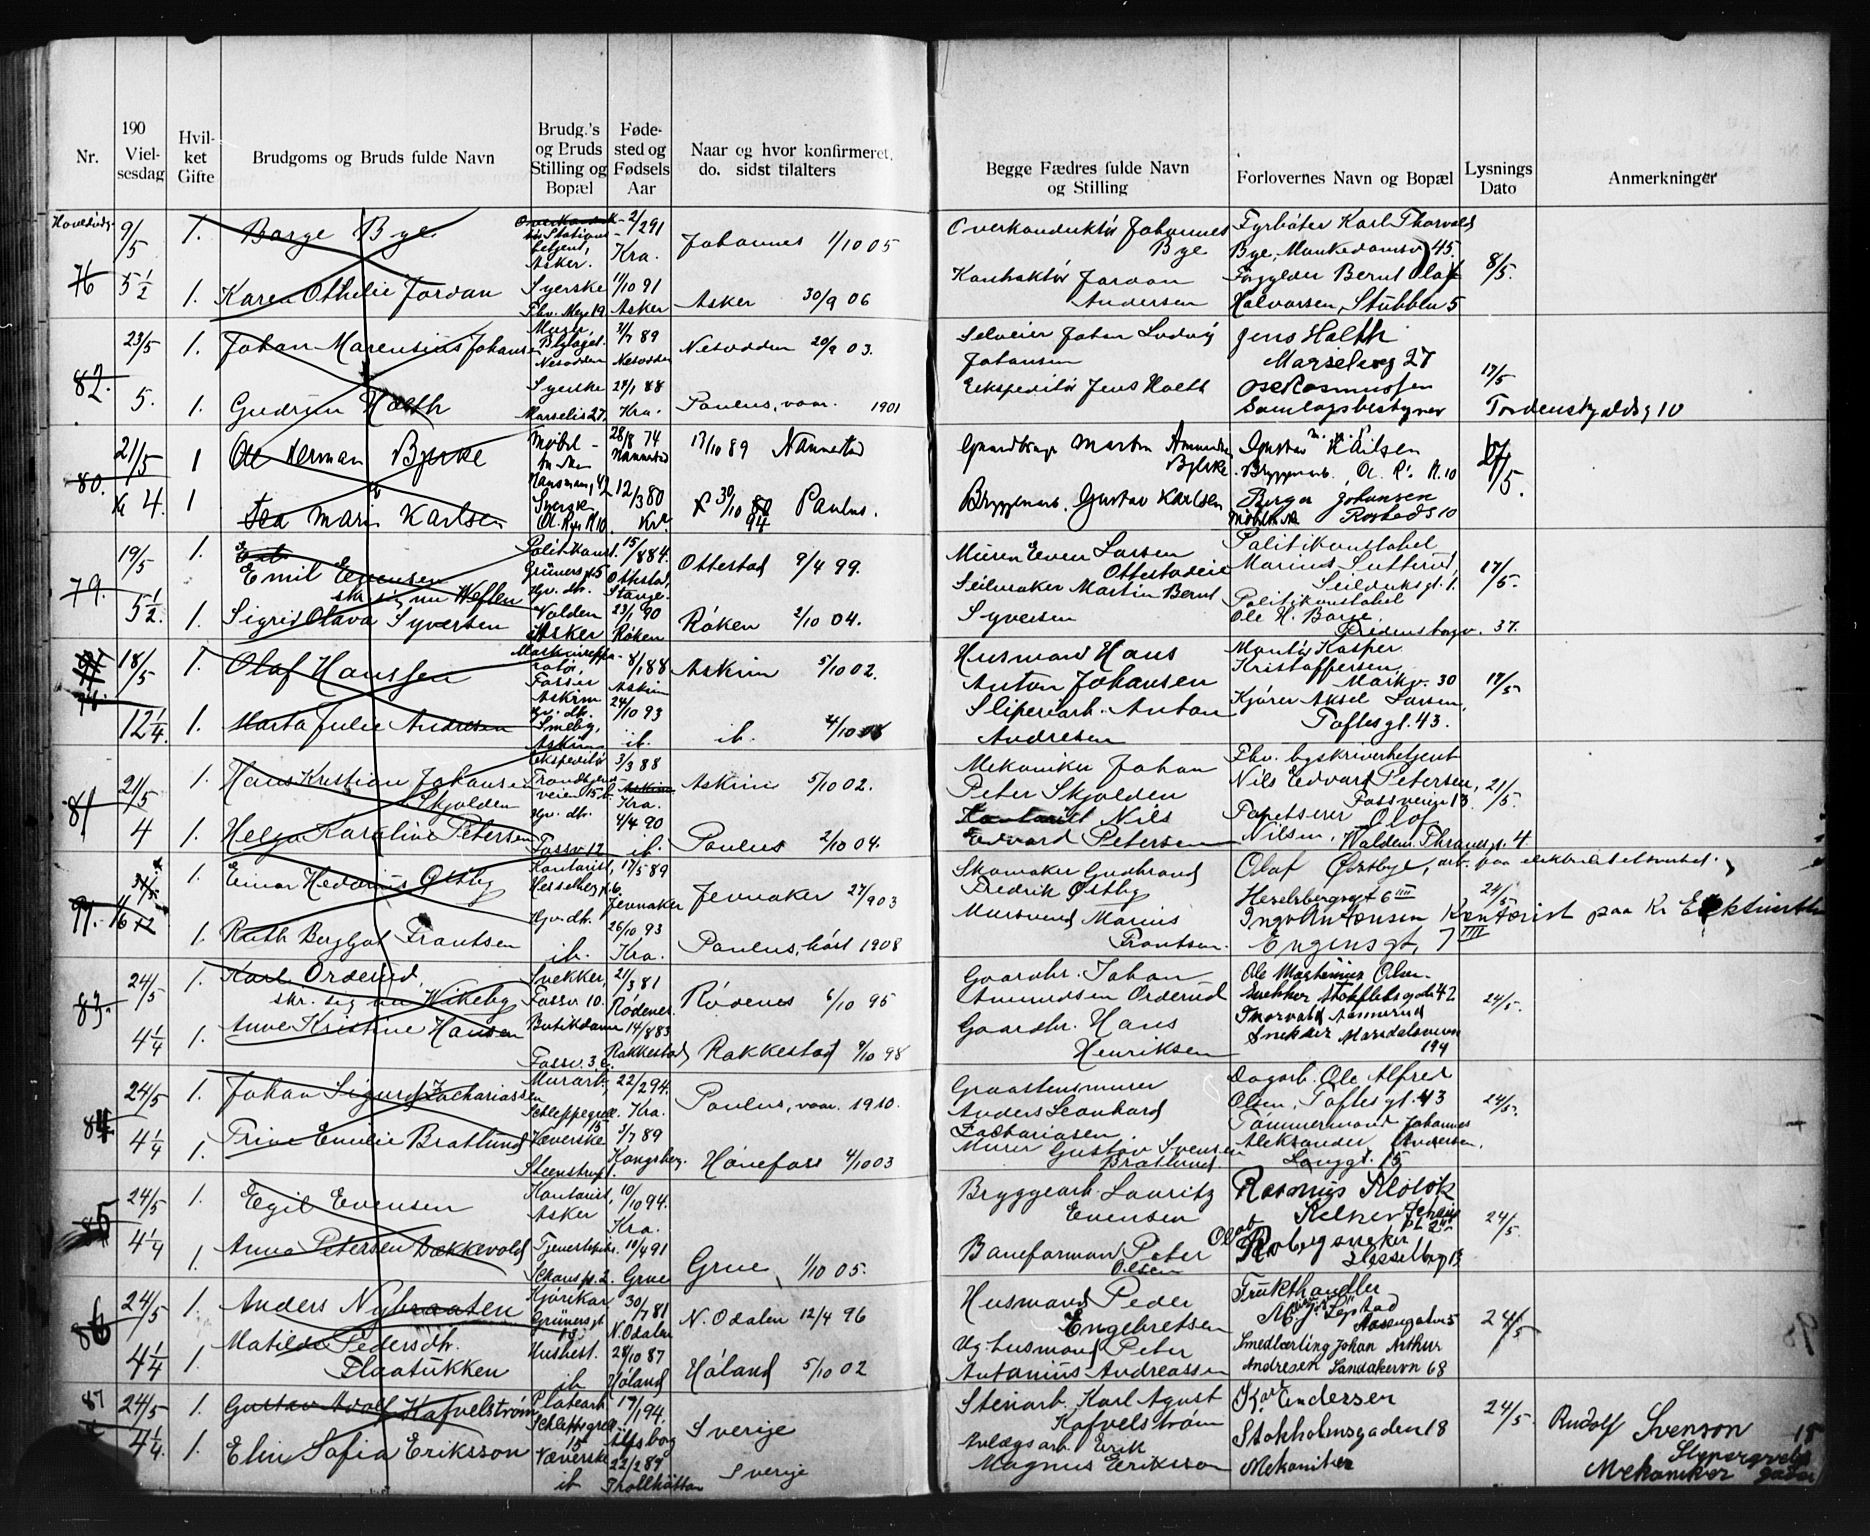 Nr.
190
Viel-
sesdag
Hvil-
ket
Gifte
Brudgoms og Bruds fulde Navn
Brudg.'s
og Bruds
Stilling og
Bopæl
Føde-
sted og
Fødsels
Aar
Naar og hvor konfirmeret,
do. sidst tilalters
Begge Fædres fulde Navn
og Stilling
Forlovernes Navn og Bopæl
Lysnings
Dato
Anmerkninger
76
9/5
5 1/2
1. Borge Bye
Asker.
2/2 91
Kra.
Johannes 1/10 05
Overkonduktør Johannes
Bye
Fyrbøter Karl Thorvald
Bye, Munkedamsv 45.
8/5.
1. Karen Othelie Jordan
Syerske
11/10 91
Asker
Asker 30/9 06
Kontraktør Jordan
Andersen
Forgylder Bernt Olaf
Halvorsen, Stubblu 5
82.
23/5
5.
1. Johan Marensius Johansen
Nesodden
3/7 89
Nesodden
Nesodden 20/9 03.
Selveier Johan Ludvig
Johansen
Jens Holth
Marseliesg 27
17/5
1. Gudrun Holth
Syerske
Marselis 27.
24/1 88
Kra.
Paulus, vaar. 1901
Ekspeditør Jens Holth
Ose Rasmussen
Samlagsbestyrer Tordenskjoldsg 10
80.
21/5
Kl 4.
1 Ole Herman Bjerke
Møbel-
28/8 74
Nannestad
17/10 89 Nannestad
Gaardbrug. Martin Amundsen
Bjerke.
Gustav Karlsen
Bryggearb.
/5.
1 Tea Marie Karlsen
Syerske
12/3 80
Kra
30/10 94 Paulus.
Bryggearb. Gustav Karlsen
Birger Johansen
Rosteds 10
79.
19/5
5 1/2.
1. Emil Evensen
skr. sig nu Weflen
Politikonst.
Grünersgt 5
15/8 84.
Ottestad,
Stange.
Ottestad 9/4 99.
Murer Even Larsen
Ottestadeie
Politikonstabel
Marius Sutterud,
Seilduksgt. 1.
17/5.
1. Sigrid Olava Syversen
Hgv. dtr.
Valden
Asker
23/1 90
Røken
Røken 2/10 04.
Seilmaker Martin Bernt
Syversen
Politikonstabel
Ole H. Borge,
Fredensborgv. 37.
18/5
12 1/4.
1. Olaf Hanssen
Maskinreppa-
ratør,
Fossen
Askim
8/1 88
Askim
Askim 5/10 02.
Husmand Hans
Anton Johansen
Montør Kasper
Kristoffersen,
Markv. 30
18/5
1. Marta Julie Andresen
Hgv. dtr.
Smeby,
Askim
24/10 93
ib.
ib. 4/10 08
Sliperiarb. Anton
Andresen
Kjører Aksel Larsen,
Toftesgt. 43.
81
21/5
4
1. Hans Kristian Johansen
Skjolden
Ekspeditør
Trondhjems-
veien 15 b.
3/3 88
Askim
Kra.
Askim 5/10 02.
Mekaniker Johan
Peter Skjolden
Fhv. byskriverbetjent
Nils Edvard Petersen,
Fossveien 13.
21/5.
1. Helga Karoline Petersen
Hgv. dtr.
Fossv. 17
4/4 90
ib.
Paulus 2/10 04.
Kontorist Nils
Edvard Petersen
Tapetserer Olof
Nilsen, Waldem. Thranesgt. 4
97.
31/5
1. Einar Hedevius Østby
Kontorist,
Hesselbergsgt. 6.
17/5 89
Jevnaker
Jevnaker 27/9 03
Skomaker Gudbrand
Fredrik Østby
Olaf Østbye, arb. paa elektricitetsverket.
Hesselbergsgt 6 III
24/5
1. Ruth Bergljot Frantsen
Hgv. dtr.
ib.
26/10 93
Kra.
Paulus, høst 1908
Mursvend Marius
Frantsen.
Ingv. Antonsen Kontorist paa Kr Elektricit
Engensgt, 7 III
83.
24/5
4 1/4
1. Karl Orderud,
skr. sig nu Wikeby
Snekker,
Fossv 10.
21/3 81
Rødenes
Rødenes 6/10 95
Gaardbr. Johan
Amundsen Orderud
Ole Martinius Olsen.
Snekker Stokfletsgade 42
24/5.
1. Anne Kristine Hansen
Butikdame
Fossv. 3 c.
14/8 83
Rakkestad
Rakkestad 9/10 98
Gaardbr. Hans
Henriksen
Thorvald Aannerud
Snekker Maridalsveien
194
84
24/5
4 1/4
1. Johan Sigurd Zachariassen
Murarb.,
Schleppegrell.
15
22/2 94.
Kra.
Paulus, vaar 1910.
Graastensmurer
Anders Leonhard
Zachariasen.
Dagarb. Ole Alfred
Olsen, Toftesgt. 43
24/5.
1. Trine Emilie Bratlund
Væverske
Steenstrupgt. 1.
3/7 89
Kongsberg.
Hønefoss 4/10 03
Murer Gustav Svensen
Bratlund
Tømmermand Johannes
Aleksander Andersen,
Langgt. 15
85
24/5
4 1/4
1. Egil Evensen
Kontorist,
Asker
10/10 94.
Kra.
Bryggearb. Lauritz
Evensen
Rasmus Kløløk
Kelner
24/5.
1. Anna Petersen Bækkevold
Schans pl. 2.
10/4 91
Grue
Grue 1/10 05.
Baneformand Peter
Olsen
Hesselbg 13
86
24/5
4 1/4
1. Anders Nybraaten
Kjørekar
Grünersgt
15
30/7 81
N. Odalen
N. Odalen 12/4 96
Husmand Peder
Engebretsen
Frukthandler
M. J. Løfstad
Aasengaten 5
24/5
1. Matilde Pedersdtr.
Flaatukken
Hushest.
ib
28/10 87
Høland
Høland 5/10 02
Ug. husmand Peter
Antonius Andreassen
Smedlærling Johan Arthur
Andresen Sandakervn 68
87
24/5
4 1/4.
1. Gustav Adolf Kafvelström
Platearb
Schleppegrell
15
17/1 94.
Älfsborg
Sverige
Stenarb. Karl Agust
Kafvelstrøm
Kar Anderssen
Stokholmsgaden 18
Mekaniker
24/5.
Rudolf Svenson 15
Mekaniker
1. Elin Sofia Eriksson
Væverske
ib
22/2 89
Trollhättan
Sverige
Anlægsarb. Erik
Magnus Eriksson